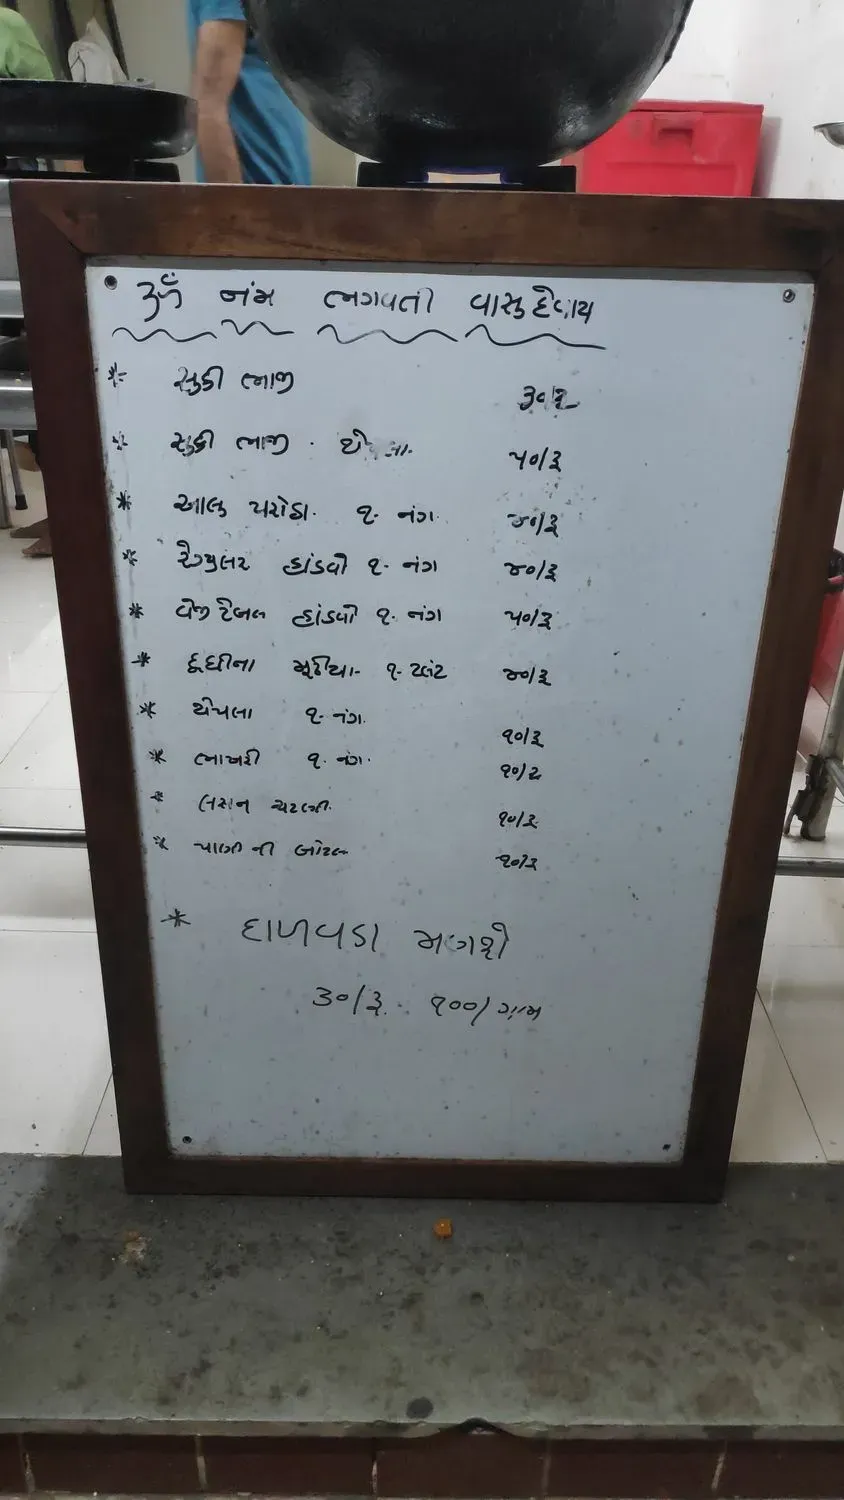 ૐ નમ ભગવતી વાસુદેવાય
* સુકી ભાજી ૩૦/રૂ
* સુકી ભાજી . ૫૦/રૂ
* આલુ પરોઠા. ૧. નંગ ૪૦/રૂ
* રેગ્યુલર હાંડવો ૧. નંગ ૪૦/રૂ
* વેજીટેબલ હાંડવો ૧. નંગ ૫૦/રૂ
* દૂધીના મૂઠીયા- ૧. પ્લેટ ૪૦/રૂ
* થેપલા ૧. નંગ. ૧૦/રૂ
* ભાખરી ૧. નંગ. ૧૦/રૂ
* લસન ચટણી. ૧૦/રૂ
* પાણી ની બોટલ ૧૦/રૂ
* દાળવડા મળશે
૩૦/રૂ. ૧૦૦/ગ્રામ